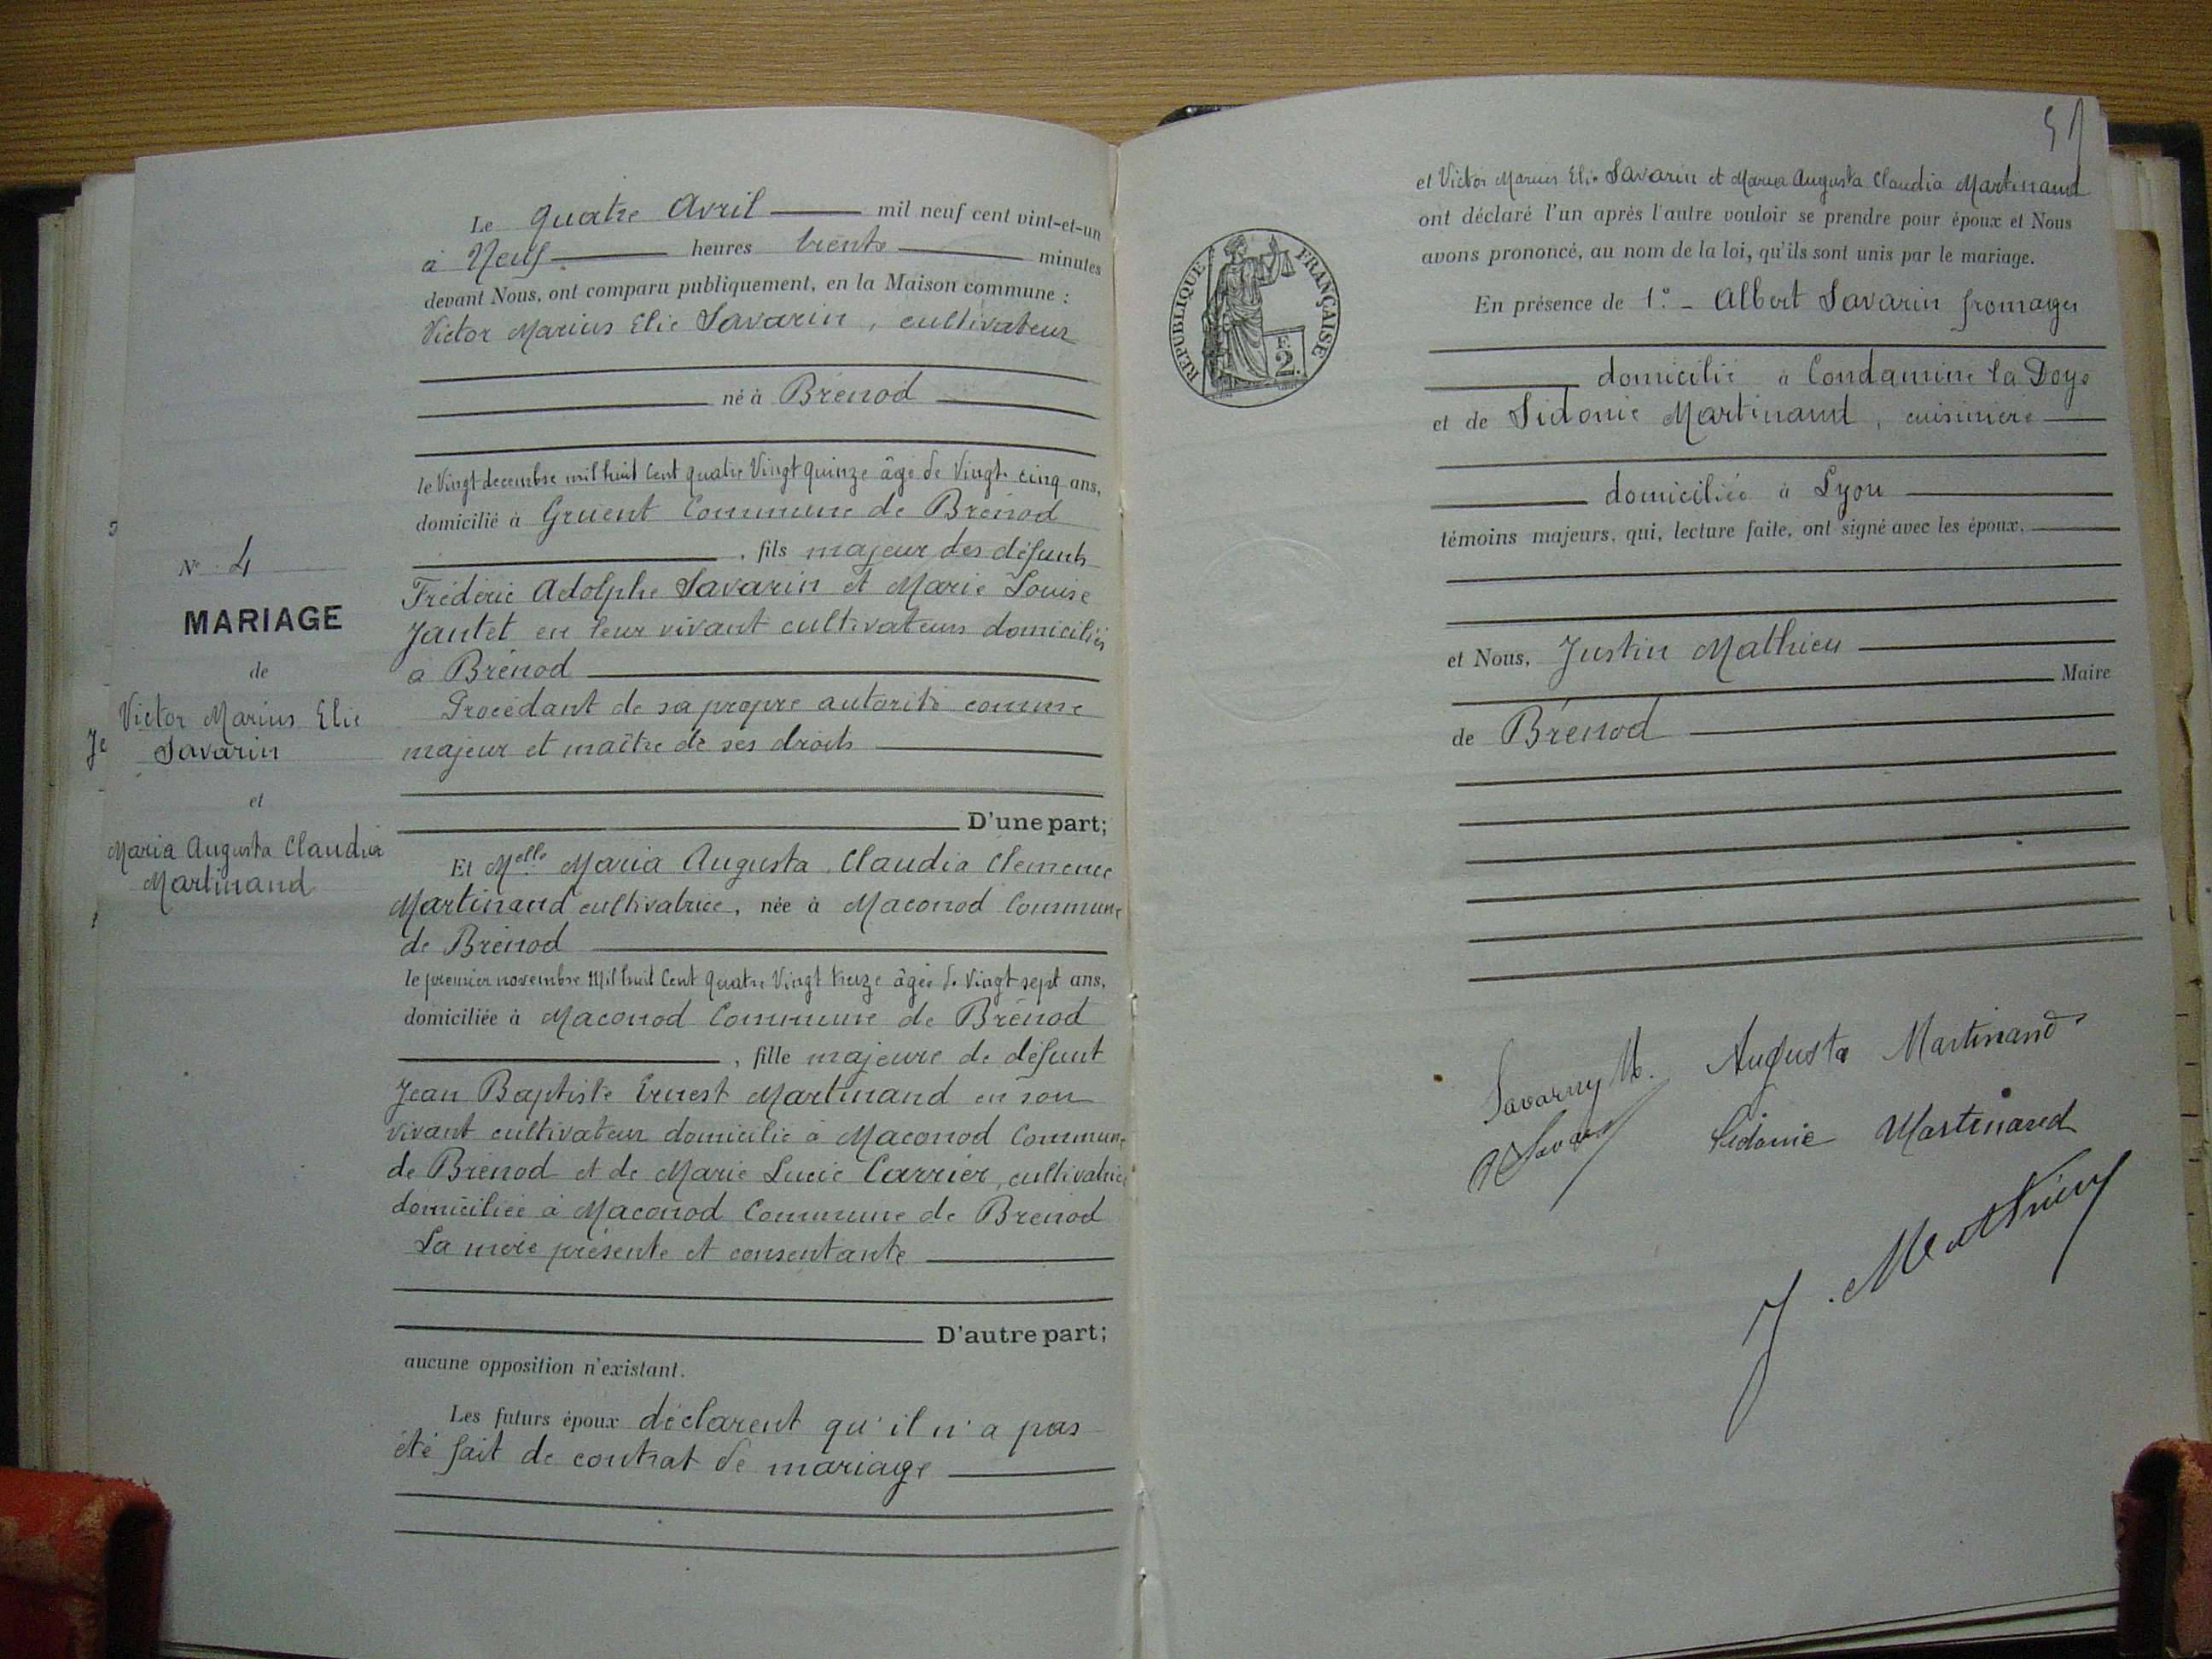 N° 4
MARIAGE
de
Victor Marius Elie
Savarin
et
Maria Augusta Claudia
Martinand
Le quatre Avril mil neuf cent vint-et-un
à Neuf heures trente minutes
devant Nous, ont comparu publiquement, en la Maison commune :
Victor Marius Elie Savarin, cultivateur
né à Brénod
le Vingt decembre mil huit Cent quatre Vingt quinze âgé de Vingt-cinq ans,
domicilié à Gruent Commune de Brénod
, fils majeur des défunts
Frédéric Adolphe Savarin et Marie Louise
Jantet en leur vivant cultivateurs domiciliés
a Brénod
Procédant de sa propre autorité comme
majeur et maître de ses droits
D'une part;
Et Melle Maria Augusta Claudia Clemence
Martinand cultivatrice, née à Maconod Commune
de Brénod
le premier novembre Mil huit Cent Quatre Vingt treize âgée de Vingt sept ans,
domiciliée à Maconod Commune de Brénod
, fille majeure de défunt
Jean Baptiste Ernest Martinand en son
vivant cultivateur domicilié à Maconod Commune
de Brénod et de Marie Lucie Carrier, cultivatrice
domiciliée à Maconod Commune de Brenod
La mère présente et consentante
D'autre part;
aucune opposition n'existant.
Les futurs époux déclarent qu'il n'a pas
été fait de contrat de mariage
RÉPUBLIQUE FRANÇAISE
F.
2.
et Victor Marius Elie Savarin et Maria Augusta Claudia Martinand
ont déclaré l'un après l'autre vouloir se prendre pour époux et Nous
avons prononcé, au nom de la loi, qu'ils sont unis par le mariage.
En présence de 1.° - Albert Savarin fromager
domicilié à Condamine la Doye
et de Sidonie Martinand, cuisinière
domiciliée à Lyon
témoins majeurs, qui, lecture faite, ont signé avec les époux.
et Nous, Justin Mathieu
Maire
de Brénod
Augusta Martinand
Sidonie Martinand
J. Mathieu